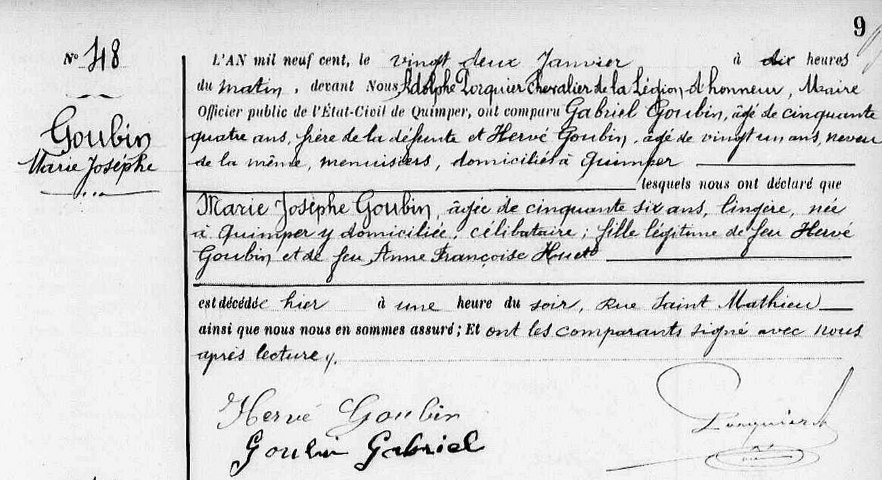 9
N° 48
Goubin
Marie Josèphe
L'AN mil neuf cent, le vingt deux Janvier à dix heures
du matin, devant Nous Adolphe Porquier Chevalier de la Légion d'honneur, Maire
Officier public de l'État-Civil de Quimper, ont comparu Gabriel Goubin, âgé de cinquante
quatre ans, frère de la défunte et Hervé Goubin, âgé de vingt un ans, neveu
de la même, menuisiers, domiciliés à Quimper
lesquels nous ont déclaré que
Marie Josèphe Goubin, âgée de cinquante six ans, lingère, née
à Quimper y domiciliée, célibataire; fille légitime de feu Hervé
Goubin et de feu Anne Françoise
est décédée hier à une heure du soir, Rue Saint Mathieu
ainsi que nous nous en sommes assuré; Et ont les comparants signé avec nous
après lecture.
Hervé Goubin
Goubin Gabriel
Porquier